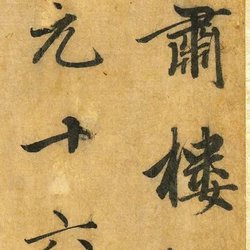 肅楼
元十六